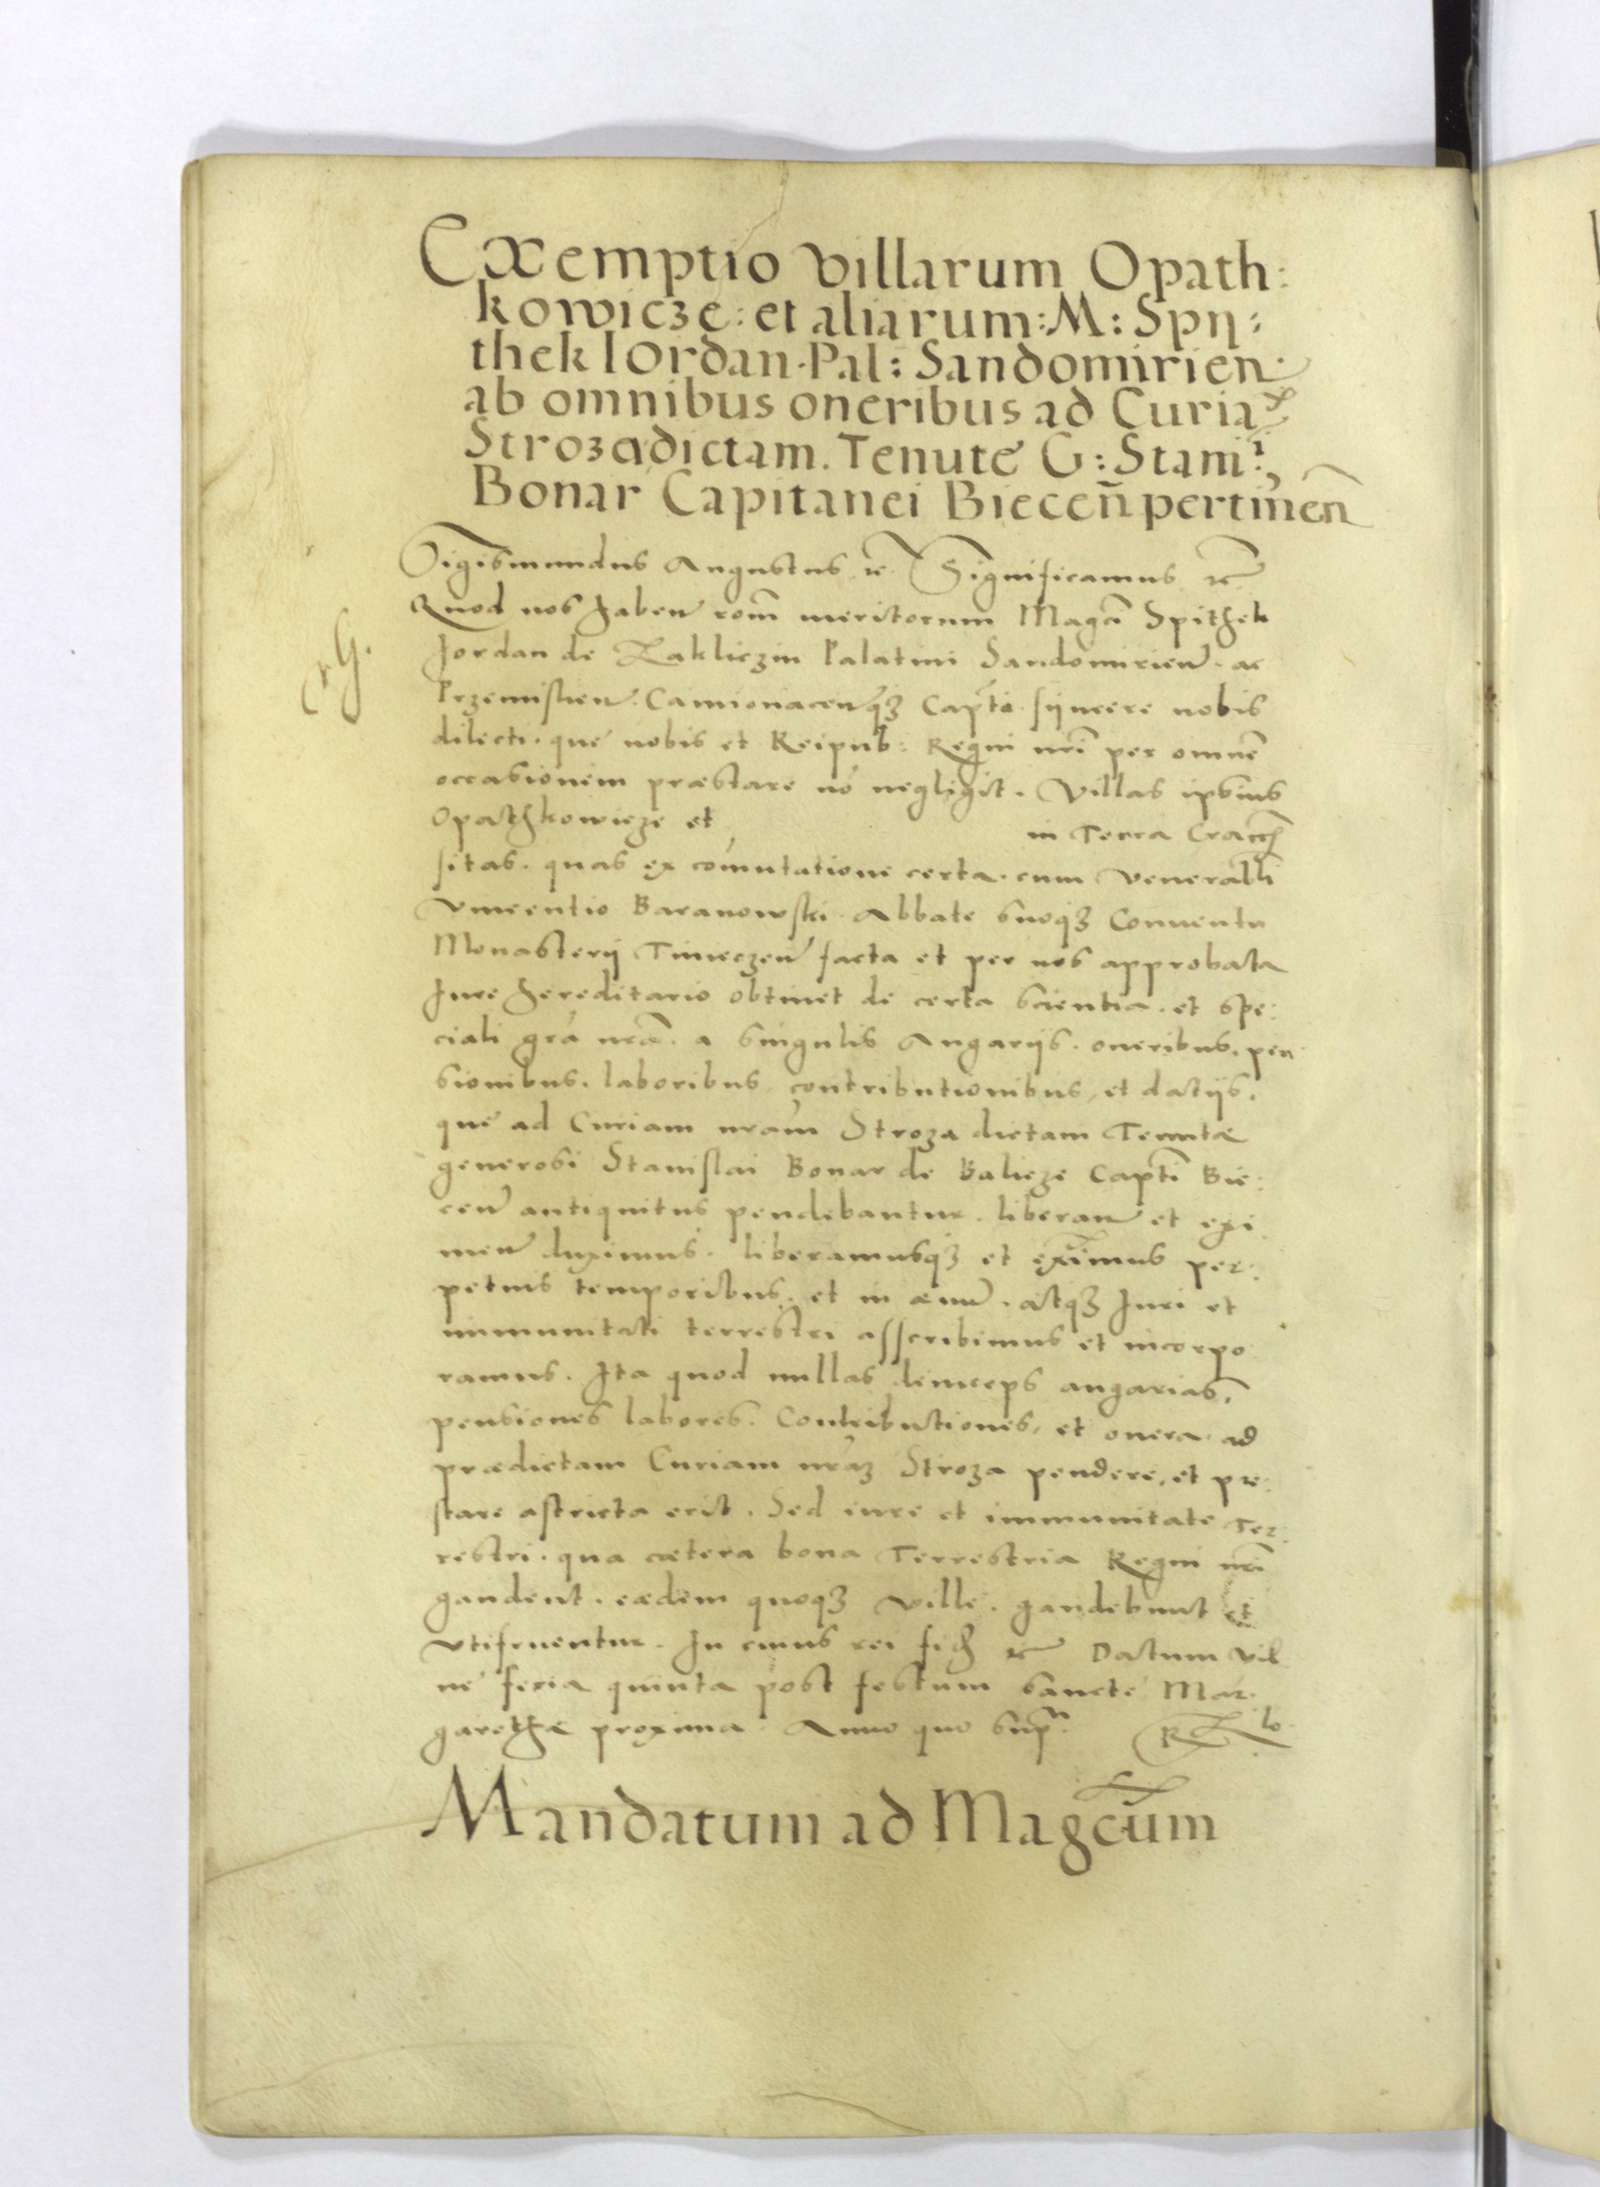 Exemptio villarum Opath:
kowicze: et aliarum: M: Spÿ:
thek Iordan. Pal: Sandomirien
ab omnibus oneribus ad Curia
Stroza dictam. Tenute G: Stani:
Bonar Capitanei Biecen̄ pertinen̄
Sigismundus Augustus rc̄. Significamus rc̄
Quod nos haben̄ rōm̄ meritorum Magci Spithek
Jordan de Zakliczin Palatini Sandomirien̄. ac
Przemislien̄. Camionacen̄qȝ Capt̄i. sÿncere nobis
dilecti. que nobis et Reipub: Regni nr̄i per omnē
occasionem præstare nō negligit. Villas ipsius
Opathkowicze et in Terra Craccn̄
sitas. quas ex com̄utatione certa. cum Venerabli
Vincentio Baranowski. Abbate suoqȝ Conuentu
Monasterÿ Tinieczen̄ facta et per nos approbata
Jure hereditario obtinet de certa scientia. et spe:
ciali gr̄a nr̄a. a singulis Angarÿs. oneribus. pen
sionibus. laboribus contributionibus, et datÿs.
que ad Curiam nr̄am Stroza dictam Tenutæ
generosi Stanislai Bonar de Balicze Capt̄i Bie:
cen̄ antiquitus pendebantur. liberan̄ et exi
men̄ duximus. liberamusqȝ et eximimus per:
petuis temporibus. et in æuu̅. atqȝ Juri et
immunitati terrestri asscribimus et incorpo
ramus. Ita quod nullas deinceps angarias,
pensiones labores. Contributiones, et onera. ad
prædictam Curiam nr̄aȝ Stroza pendere, et pre:
stare astricta erit. Sed iure et immunitate Ter:
restri. qua cætera bona Terrestria Regni nr̄i
gaudent. eædem quoqȝ ville. gaudebunt et
vtifruentur. In cuius rei fid̄ rc̄ Datum Vil
ne feria quinta post festum sancte Mar.
garethæ proxima. Anno quo sup̄.
Mandatum ad Magcum